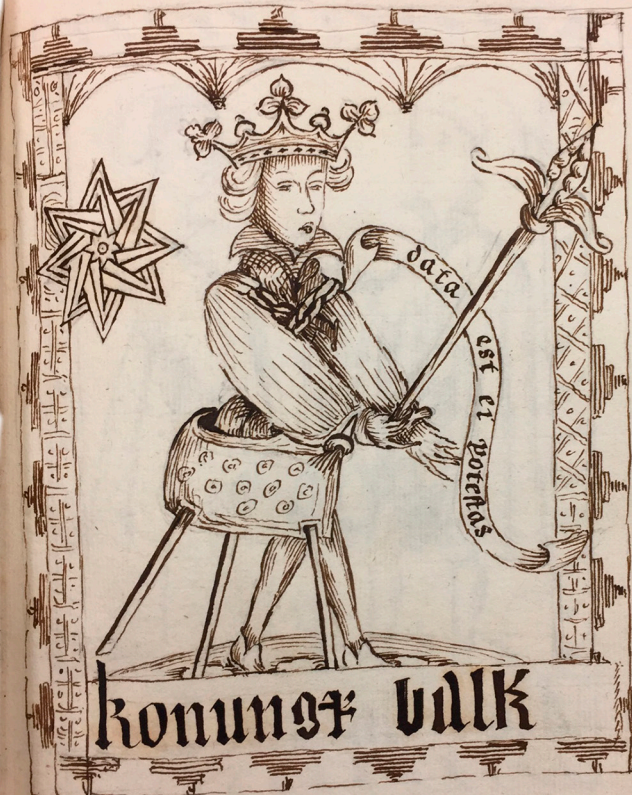 data est ei potestas
konungx balk